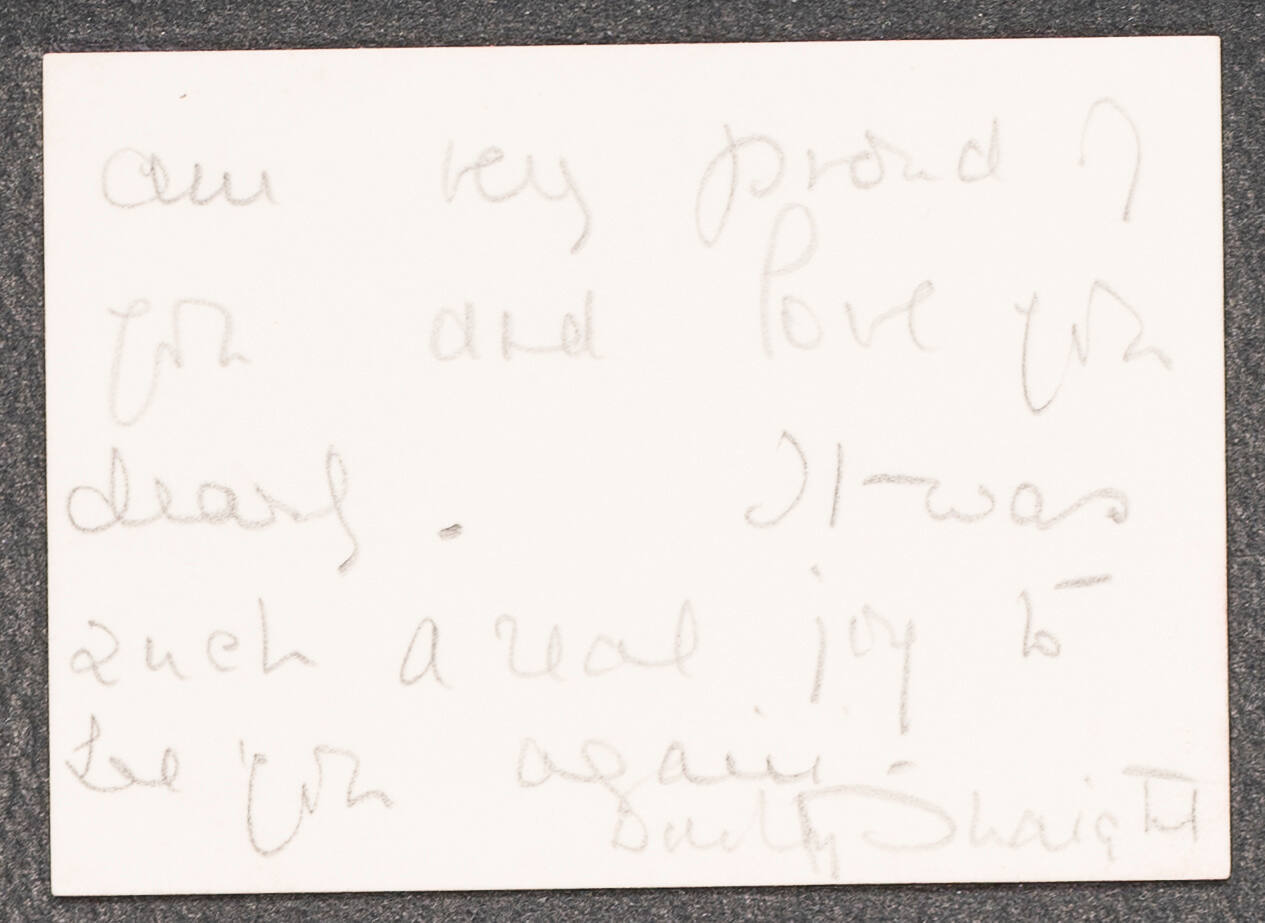 am very proud of
you and love you
dearly. It was
such a real joy to
see you again.